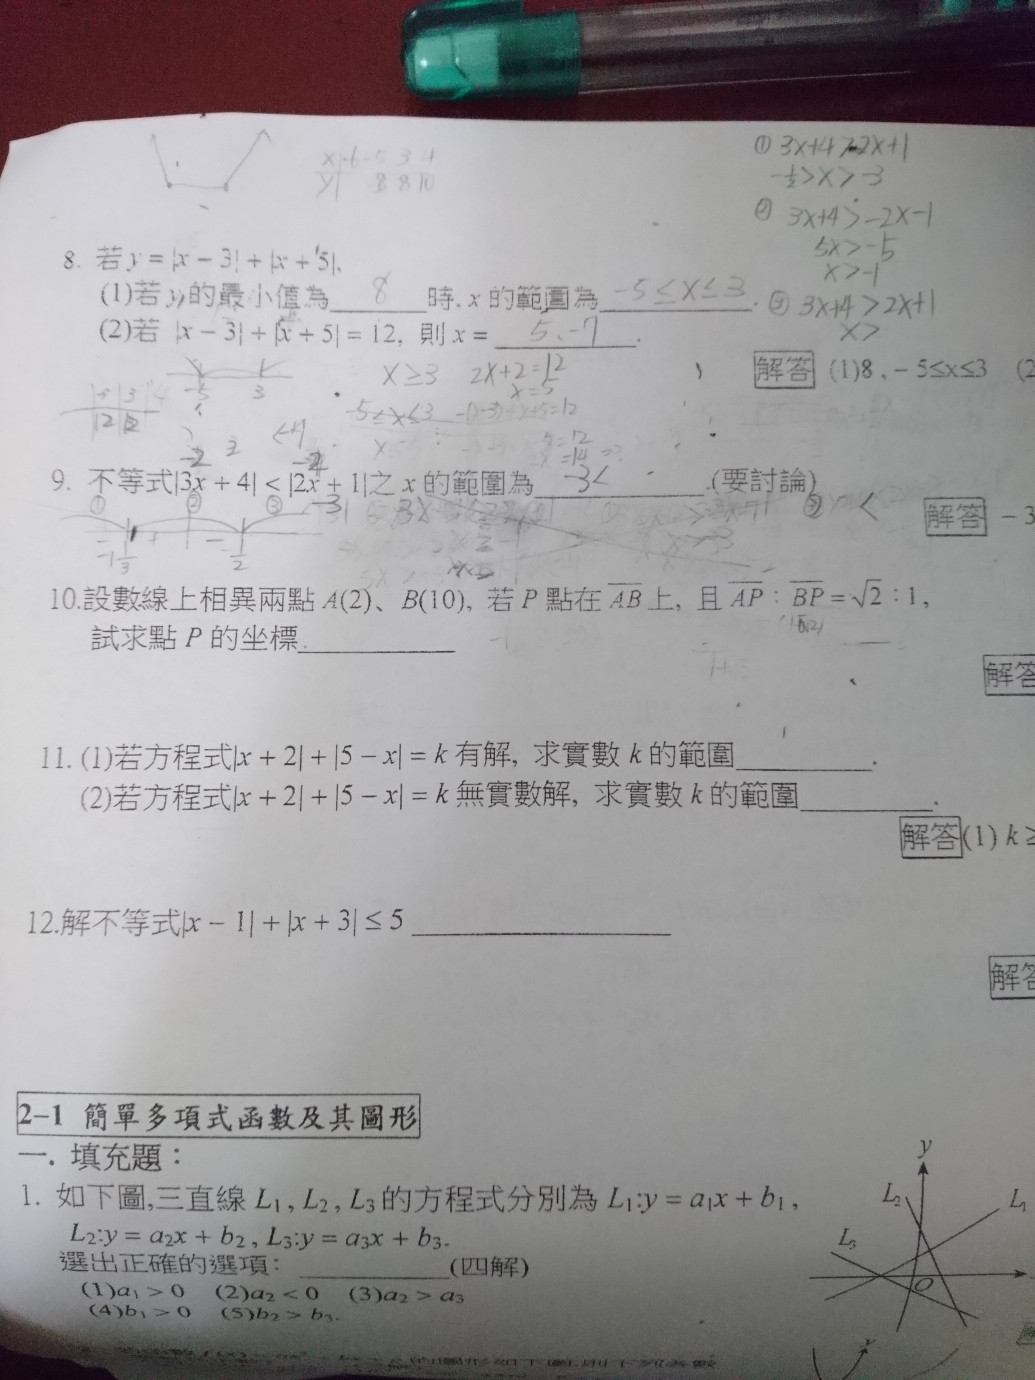 ① 3x+4>-2x+1
-½>x>-3
② 3x+4>-2x-1
5x>-5
x>-1
8. 若 y = |x − 3| + |x + 5|,
(1)若 y 的最小值為 8 時, x 的範圍為 -5≤x≤3 .
③ 3x+4>2x+1
x>
(2)若 |x − 3| + |x + 5| = 12, 則 x = 5、-7 .
解答 (1)8 , − 5≤x≤3 (2
x≥3 2x+2=12
x=5
-5 3
-5≤x≤3 -(x-3)+x+5=12
9. 不等式|3x + 4| < |2x + 1|之 x 的範圍為 -3< .(要討論)
① ② ③
解答 − 3
10.設數線上相異兩點 A(2)、B(10), 若 P 點在 AB 上, 且 AP : BP = √2 : 1,
試求點 P 的坐標
解答
11. (1)若方程式|x + 2| + |5 − x| = k 有解, 求實數 k 的範圍 .
(2)若方程式|x + 2| + |5 − x| = k 無實數解, 求實數 k 的範圍 .
解答 (1) k ≥
12.解不等式|x − 1| + |x + 3| ≤ 5
解答
2−1 簡單多項式函數及其圖形
一. 填充題：
1. 如下圖,三直線 L₁ , L₂ , L₃ 的方程式分別為 L₁:y = a₁x + b₁ ,
L₂:y = a₂x + b₂ , L₃:y = a₃x + b₃.
選出正確的選項: (四解)
(1)a₁ > 0 (2)a₂ < 0 (3)a₂ > a₃
(4)b₁ > 0 (5)b₂ > b₃.
y
L₂
L₁
L₃
O